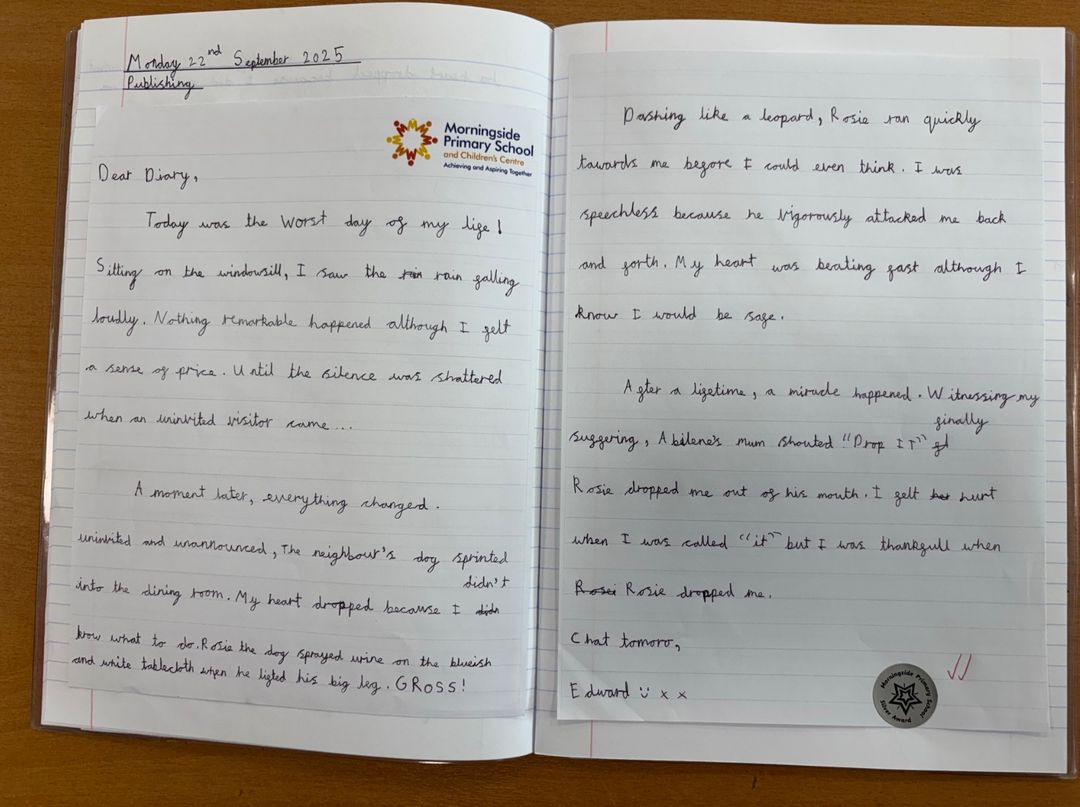 Monday 22nd September 2025
Publishing
Morningside
Primary School
and Children's Centre
Achieving and Aspiring Together
Dear Diary,
Today was the worst day of my life!
Sitting on the windowsill, I saw the rain rain falling
loudly. Nothing remarkable happened although I felt
a sense of price. Until the silence was shattered
when an uninvited visitor came...
A moment later, everything changed.
uninvited and unannounced, The neighbour's dog sprinted
didn't
into the dining room. My heart dropped because I didn
know what to do. Rosie the dog sprayed urine on the blueish
and white tablecloth when he lifted his big leg. GROSS!
Dashing like a leopard, Rosie ran quickly
towards me before I could even think. I was
speechless because he vigorously attacked me back
and forth. My heart was beating fast although I
know I would be safe.
After a lifetime, a miracle happened. Witnessing my
finally
suffering, Abilene's mum shouted "Drop IT"
Rosie dropped me out of his mouth. I felt hurt
when I was called "it" but I was thankfull when
Rosei Rosie dropped me.
Chat tomoro,
Edward x x
Morningside Primary School
Silver Award